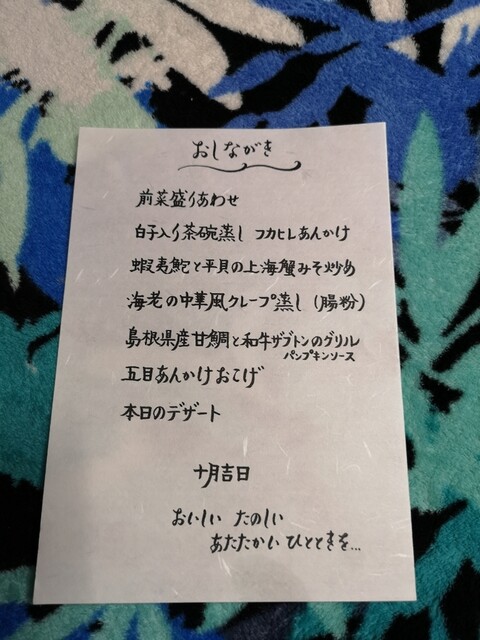 おしながき
前菜盛りあわせ
白子入り茶碗蒸し フカヒレあんかけ
蝦夷鮑と平貝の上海蟹みそ炒め
海老の中華風クレープ蒸し（腸粉）
島根県産甘鯛と和牛ザブトンのグリル
パンプキンソース
五目あんかけおこげ
本日のデザート
十月吉日
おいしい たのしい
あたたかい ひとときを...